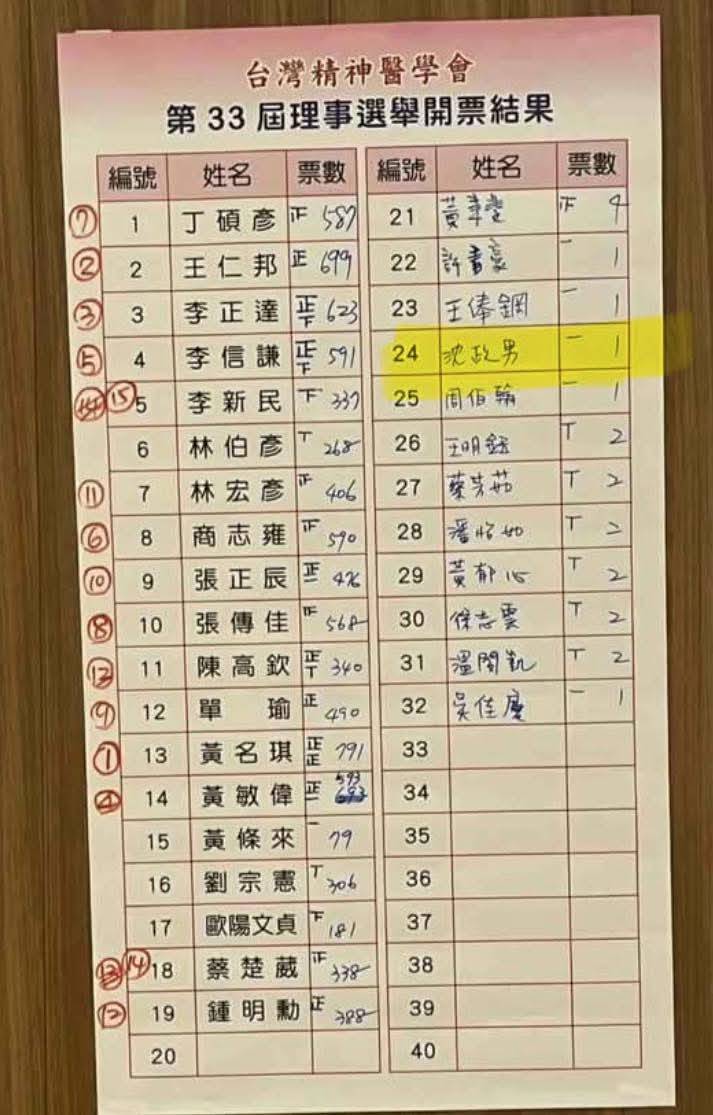 台灣精神醫學會
第 33 屆理事選舉開票結果
編號 姓名 票數 編號 姓名 票數
⑦ 1 丁碩彥 正 587 21 正 4
② 2 王仁邦 正 699 22 許書豪 一 1
③ 3 李正達 正下 623 23 王俸鋼 一 1
⑤ 4 李信謙 正下 591 24 沈政男 一 1
⑭ ⑮ 5 李新民 下 337 25 周伯翰 一 1
6 林伯彥 丅 268 26 王明鈺 丅 2
⑪ 7 林宏彥 正 406 27 蔡芳茹 丅 2
⑥ 8 商志雍 正 590 28 潘怡如 丅 2
⑩ 9 張正辰 正一 476 29 黃郁心 丅 2
⑧ 10 張傳佳 正 568 30 徐志雲 丅 2
11 陳高欽 正丅 340 31 溫閔凱 丅 2
⑨ 12 單瑜 正 490 32 吳佳慶 一 1
① 13 黃名琪 正正 791 33
④ 14 黃敏偉 正一 593 34
15 黃條來 一 79 35
16 劉宗憲 丅 306 36
17 歐陽文貞 下 181 37
⑬ ⑭ 18 蔡楚葳 正 338 38
⑫ 19 鍾明勳 正 388 39
20 40